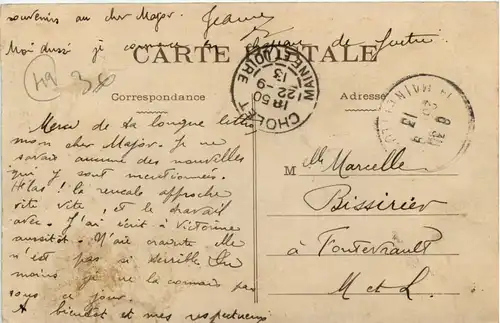 souvenirs au cher Major. Jeanne
Moi aussi je connais
CARTE POSTALE
49
36
CHOLET
18 50
22 -9
13
MAINE-ET-LOIRE
Correspondance
Adresse
Merci de ta longue lettre
mon cher Major. Je ne
savais aucune des nouvelles
qui y sont mentionnées.
Hélas ! la rentrée approche
vite vite, et le travail
avec. J'ai écrit à Victorine
aussitôt. N'aie crainte elle
n'est pas si terrible. Du
moins je ne la connais pas
sous ce jour.
A bientôt et mes respectueux
Melle Marcelle
Bissirier
à Fontevrault
M et L.